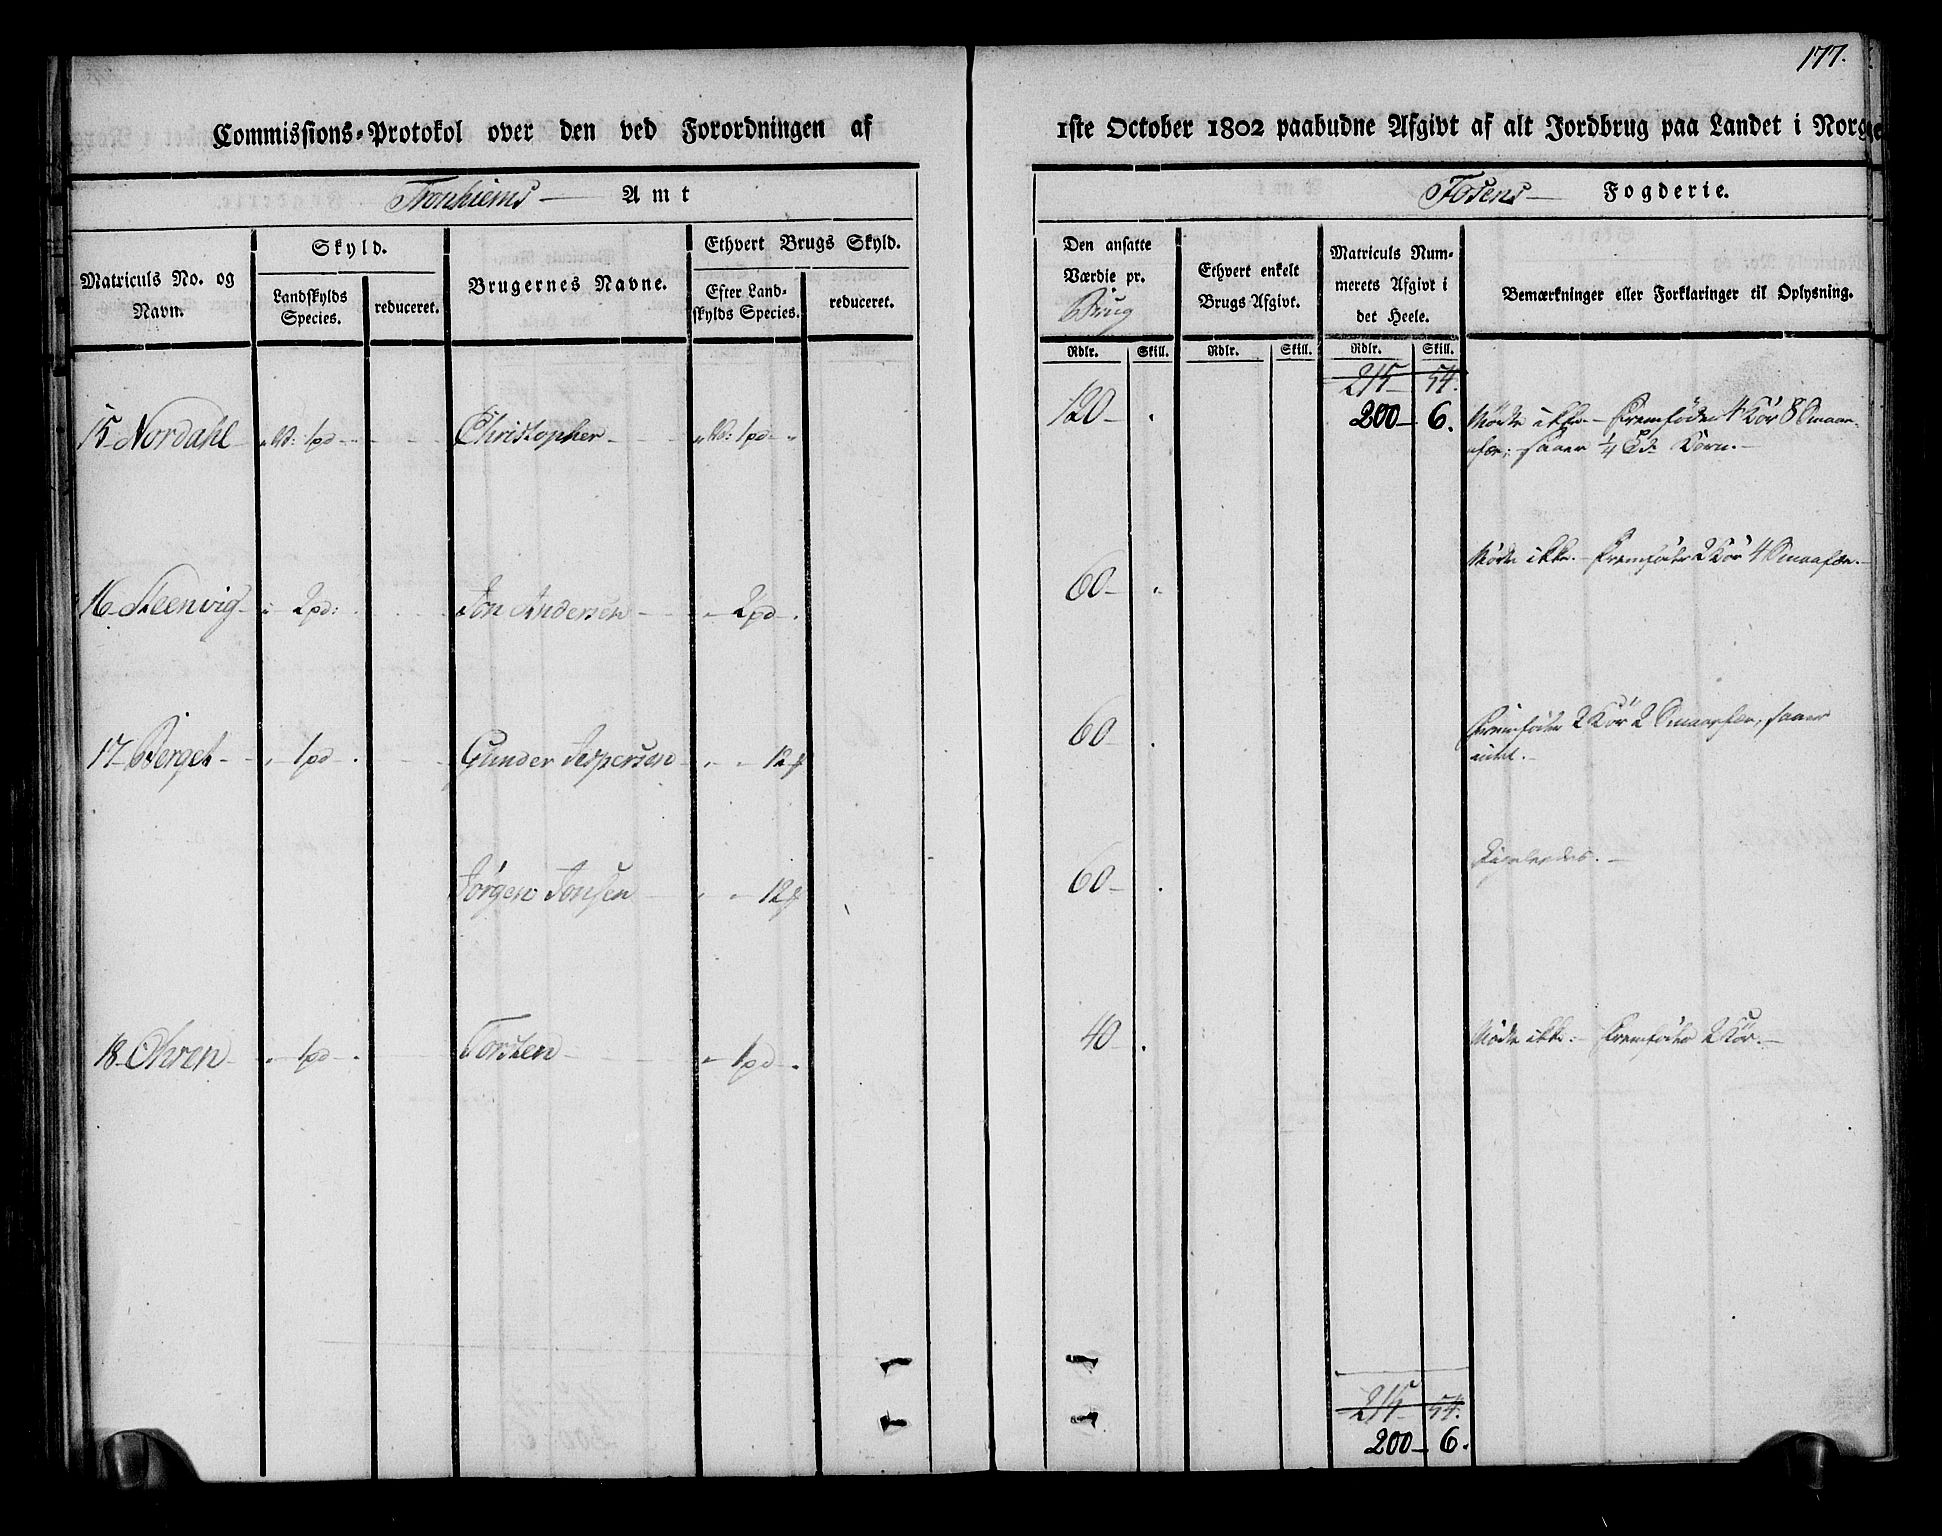 177.
Commissions-Protokol over den ved Forordningen af 1ste October 1802 paabudne Afgivt af alt Jordbrug paa Landet i Norge
Tronhiems Amt
Fosens Fogderie.
Matriculs No. og Navn.
Skyld.
Landskylds Species.
reduceret.
Brugernes Navne.
Ethvert Brugs Skyld.
Efter Landskylds Species.
reduceret.
Den ansatte Værdie pr. Brug
Rdlr. Skill.
Ethvert enkelt Brugs Afgivt.
Rdlr. Skill.
Matriculs Nummerets Afgivt i det Heele.
Rdlr. Skill.
Bemærkninger eller Forklaringer til Oplysning.
215 54.
200 6.
15 Nordahl 1pd Christopher 1pd 120 Mødte ikke. Fremføder 4 Kör 8 Smaafæ; saaer 1/4 Td: Korn.
16 Steenvig 2pd: Jon Andersen 2pd 60 Mødte ikke. Fremføder 2 Kör 4 Smaafæe.
17 Berget 1pd Gunder Jespersen 12 60 Fremføder 2 Kör 2 Smaafæe, saaer intet.
Jørgen Jonsen 12 60 Ligeledes.
18 Ohren 1pd Torsten 1pd 40 Mødte ikke. Fremføder 2 Kör.
215 54.
200 6.